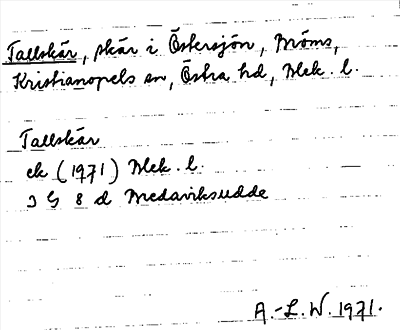 Tallskär, skär i Östersjön, Bröms,
Kristianopels sn, Östra hd, Blek. l.
Tallskär
ek (1971) Blek. l.
3 G 8 d Bredaviksudde
A.-L.W. 1971.